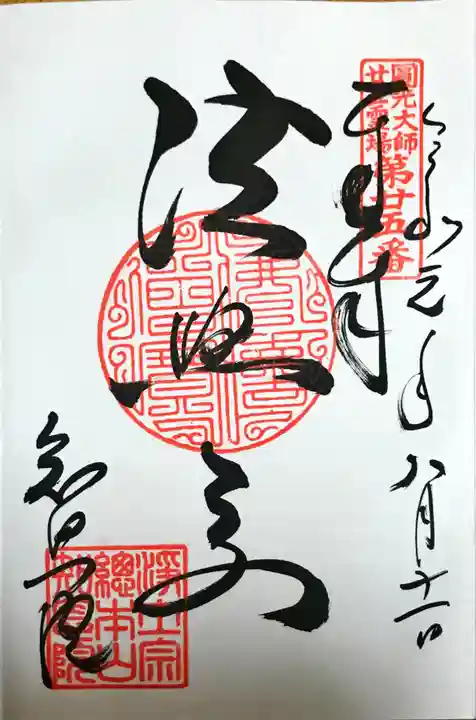 令和元年八月十一日
圓光大師
廿五霊場
第廿五番
奉拝
法然
知恩院
浄土宗
總本山
知恩院